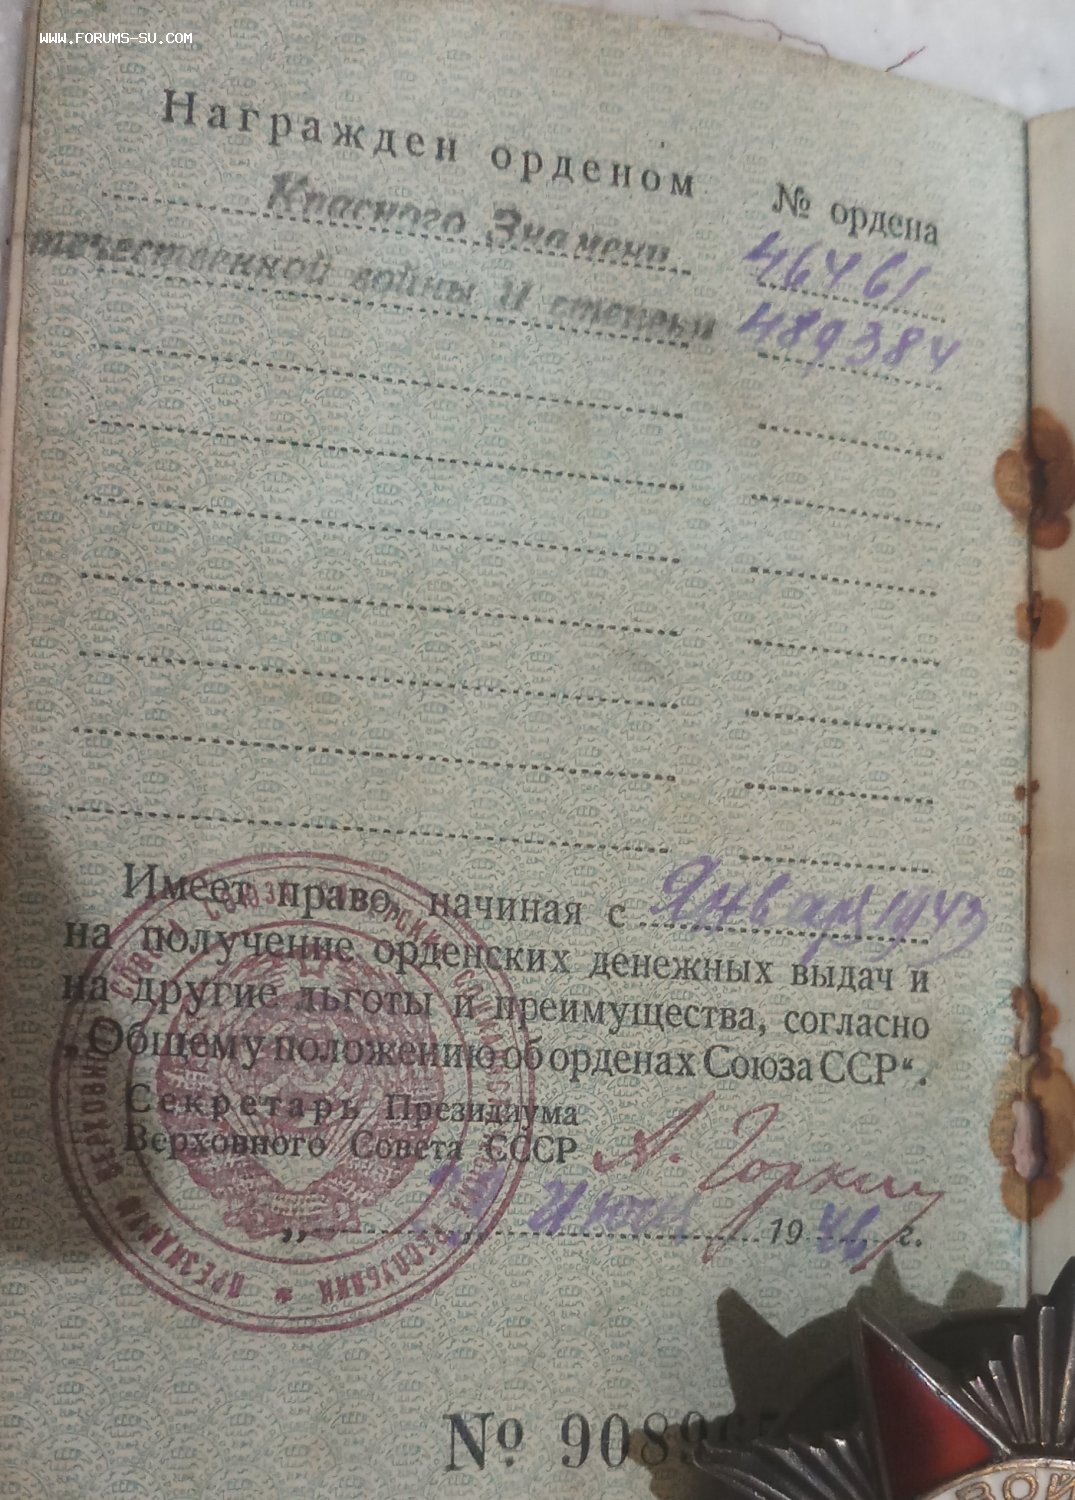 WWW.FORUMS-SU.COM
Награжден орденом № ордена
Красного Знамени 46461
течественной войны II степени 489384
Имеет право, начиная с Января 1943
на получение орденских денежных выдач и
на другие льготы и преимущества, согласно
„Общему положению об орденах Союза ССР“.
Секретарь Президиума
Верховного Совета СССР А. Горкин
„ “ Июня 1946 г.
№ 908
ВОЙ
ПРЕЗИДИУМ ВЕРХОВНОГО СОВЕТА СОЮЗА СОВЕТСКИХ СОЦИАЛИСТИЧЕСКИХ РЕСПУБЛИК